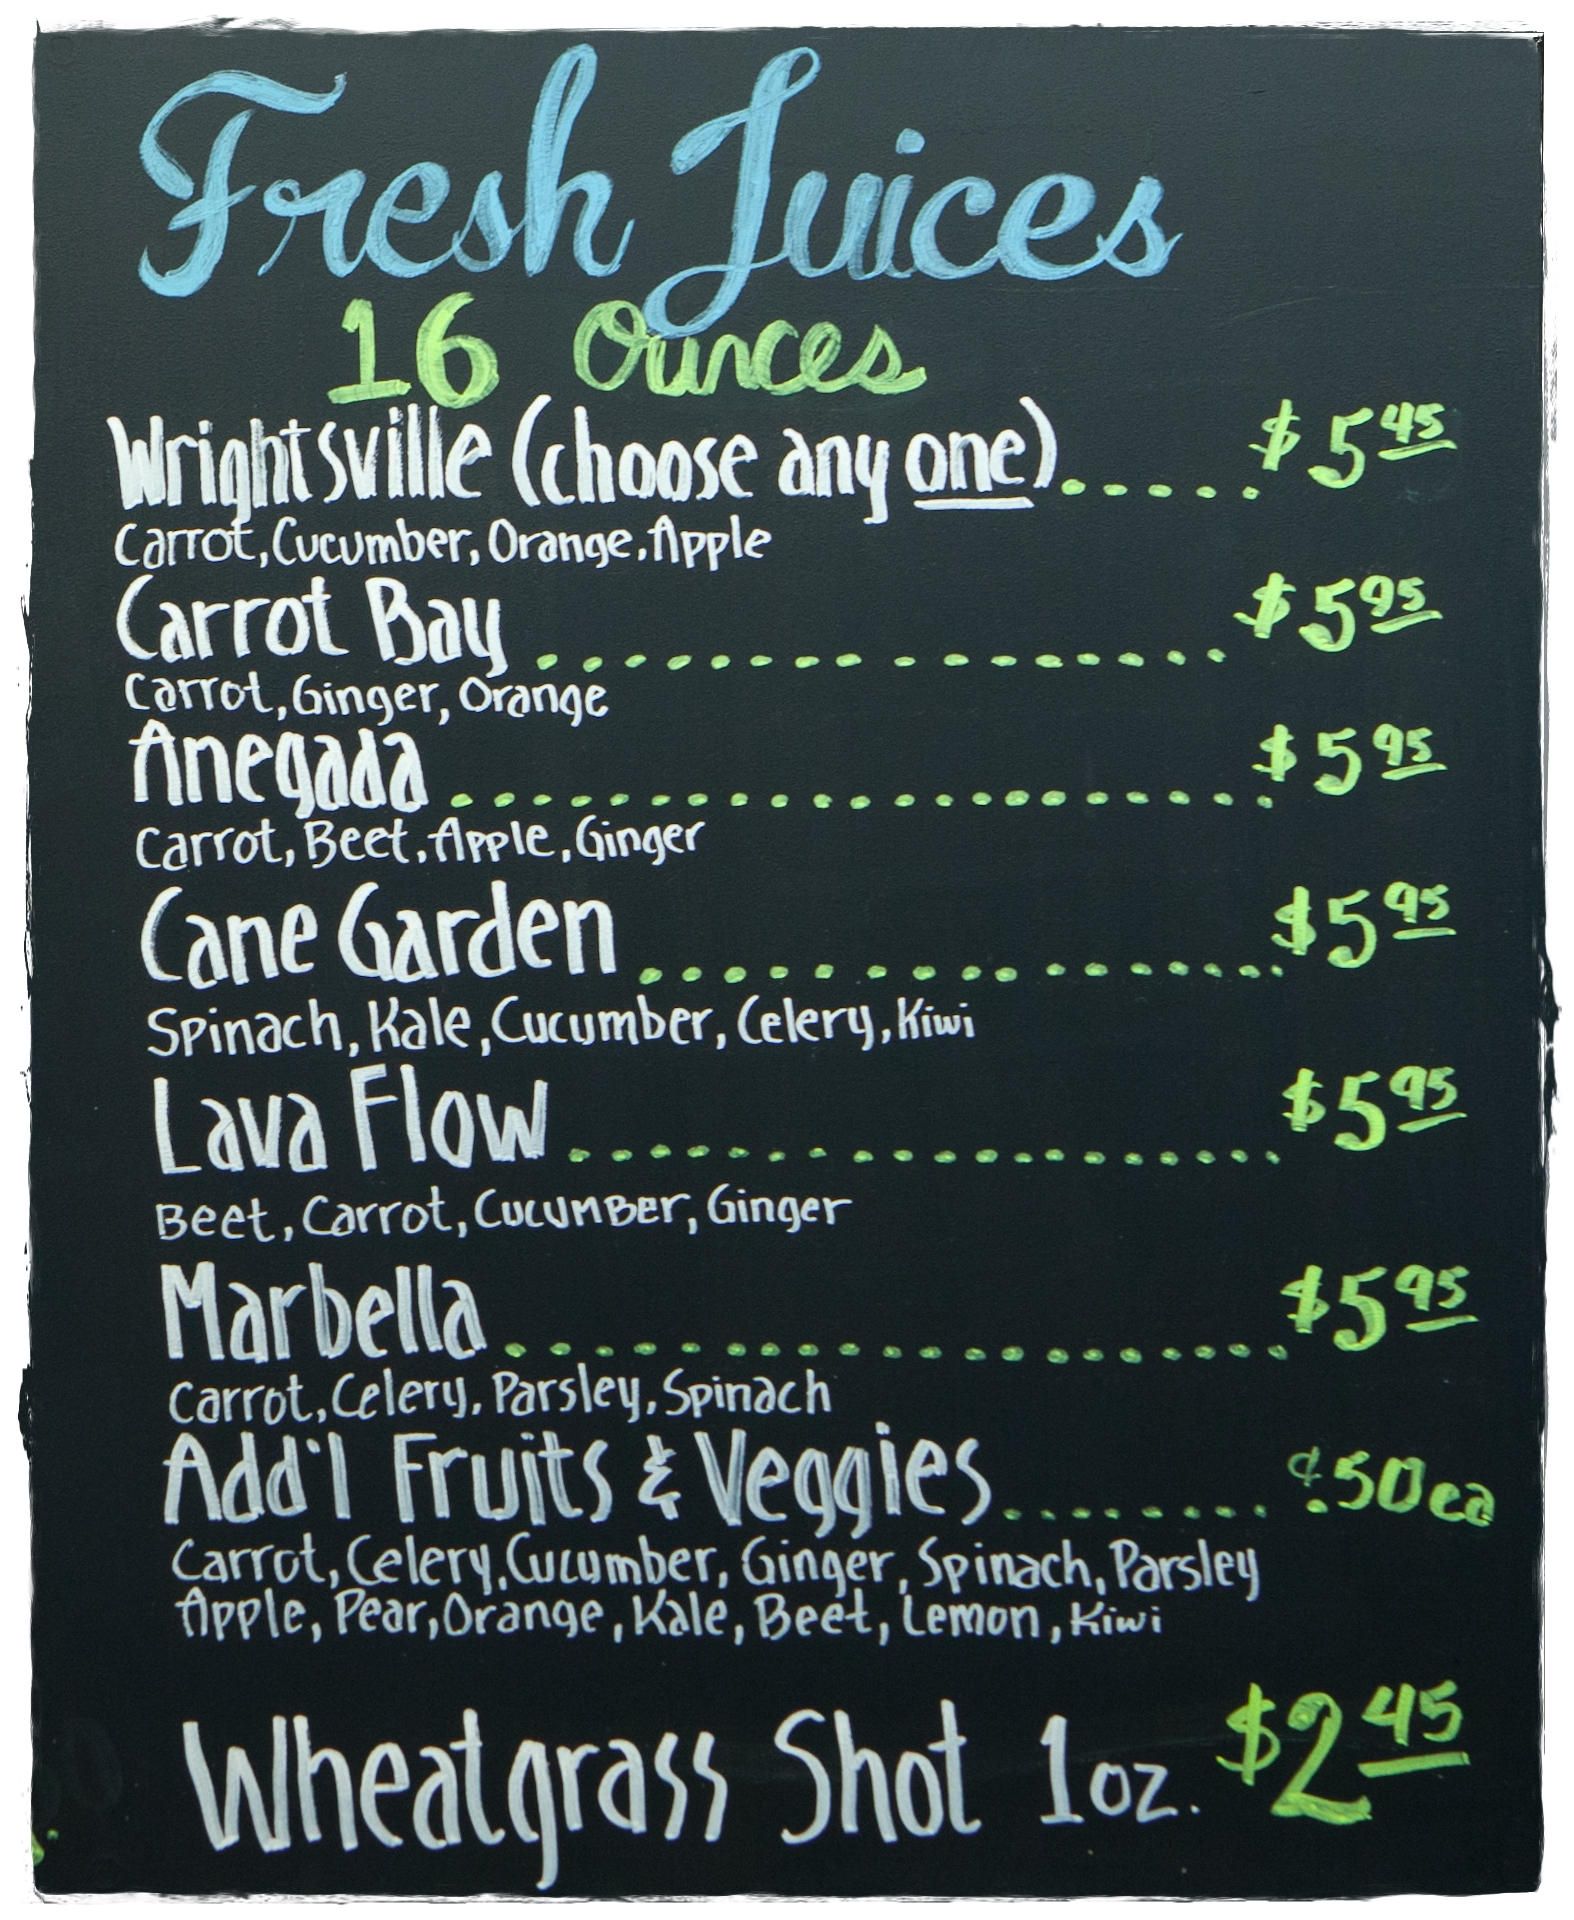 Fresh Juices
16 Ounces
Wrightsville (choose any one)..... $5.45
Carrot, Cucumber, Orange, Apple
Carrot Bay ................ $5.95
Carrot, Ginger, Orange
Anegada ..................... $5.95
Carrot, Beet, Apple, Ginger
Cane Garden .............. $5.95
Spinach, Kale, Cucumber, Celery, Kiwi
Lava Flow .................. $5.95
Beet, Carrot, Cucumber, Ginger
Marbella ................... $5.95
Carrot, Celery, Parsley, Spinach
Add'l Fruits & Veggies........ ¢.50 ea
Carrot, Celery, Cucumber, Ginger, Spinach, Parsley
Apple, Pear, Orange, Kale, Beet, Lemon, Kiwi
Wheatgrass Shot 1oz. $2.45